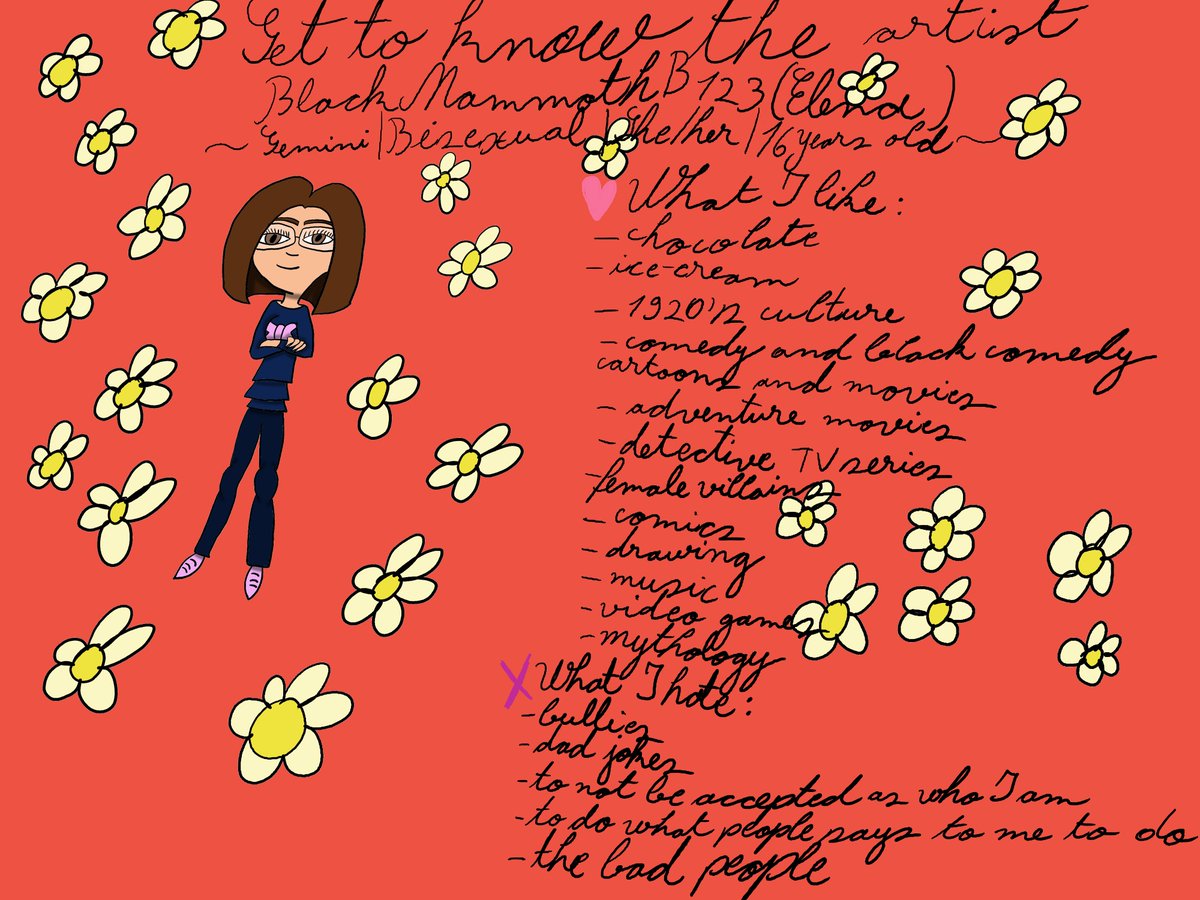 Get to know the artist
BlackMammothB123(Elena)
~Gemini|Bisexual|She/her|16 years old~
What I like:
-chocolate
-ice-cream
-1920's culture
-comedy and black comedy
cartoons and movies
-adventure movies
-detective TV series
-female villains
-comics
-drawing
-music
-video games
-mythology
X What I hate:
-bullies
-dad jokes
-to not be accepted as who I am
-to do what people says to me to do
-the bad people